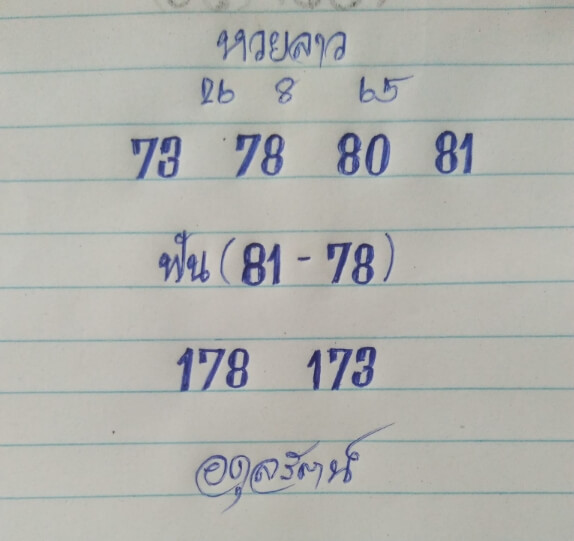 หวยลาว
26 8 65
73 78 80 81
ฟัน (81 - 78)
178 173
อดุลรัตน์